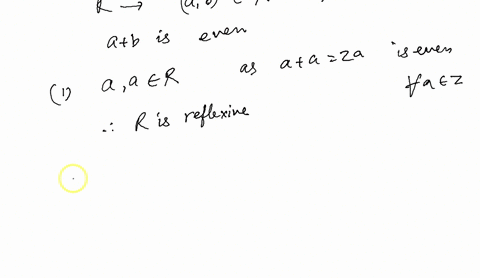 R → (a, b) ∈
a+b is even
(1) a, a ∈ R as a+a = 2a is even
∀ a ∈ Z
∴ R is reflexine